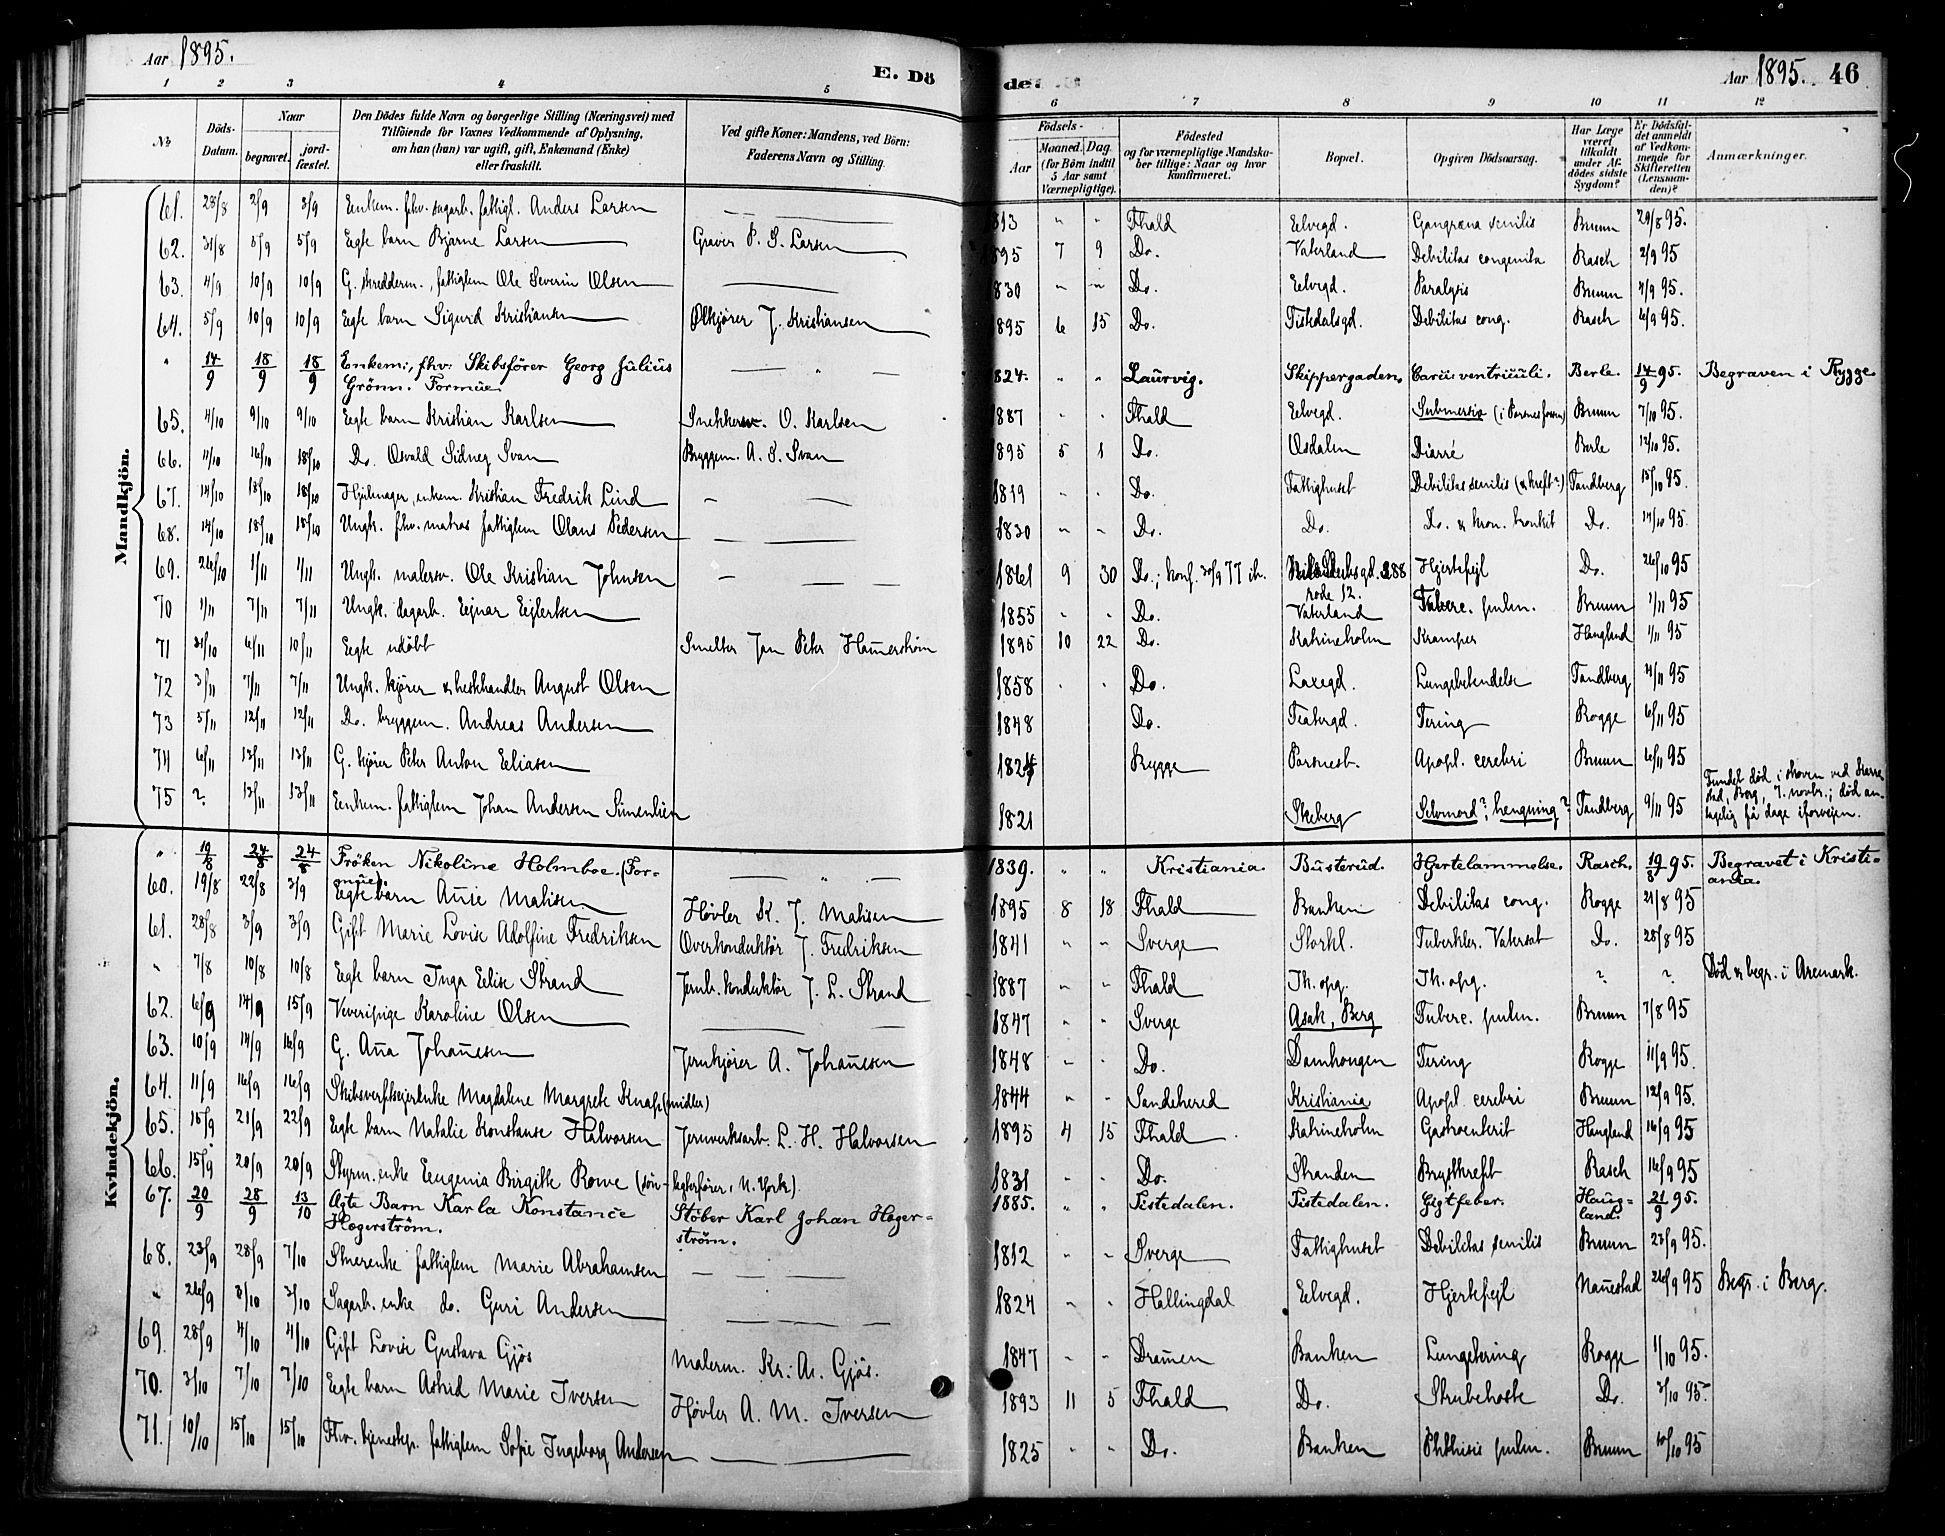 Aar 1895.
E. Dö
de
Aar 1895. 46
1 2 3 4 5 6 7 8 9 10 11 12
No Döds-Datum. Naar begravet. jordfæstet. Den Dödes fulde Navn og borgerlige Stilling (Næringsvei) med Tilföiende for Voxnes Vedkommende af Oplysning, om han (hun) var ugift, gift, Enkemand (Enke) eller fraskilt. Ved gifte Koner: Mandens, ved Börn: Faderens Navn og Stilling. Födsels- Aar Maaned. Dag. (for Börn indtil 5 Aar samt Værnepligtige). Födested og for værnepligtige Mandskaber tillige: Naar og hvor konfirmeret. Bopæl. Opgiven Dödsaarsag. Har Læge været tilkaldt under Afdödes sidste Sygdom? Er Dödsfaldet anmeldt af Vedkommende for Skifteretten (Lensmanden)? Anmærkninger.
Mandkjön.
61. 28/8 2/9 3/9 Enkem. fhv. sagarb. fattigl. Anders Larsen 1813 " " Fhald Eelvegd. Gangræna senilis Bruun 29/8 95.
62. 31/8 5/9 5/9 Egte barn Bjarne Larsen Graver P. S. Larsen 1895 7 9 Do. Vaterland Debilitas congenita Rasch 2/9 95
63. 4/9 10/9 10/9 G. skredderm., fattiglem Ole Severin Olsen 1830 " " Do. Eelvegd. Paralysis Bruun 4/9 95.
64. 5/9 10/9 10/9 Egte barn Sigurd Kristiansen Ølkjører J. Kristiansen 1895 6 15 Do. Tistedalsgd. Debilitas cong. Rasch 6/9 95.
" 14/9 18/9 18/9 Enkem., fhv. Skibsförer Georg Julius Grönn. Formue. 1824. " " Laurvig. Skippergaden. Carcis ventriculi. Berle. 14/9 95. Begraven i Rygge
65. 4/10 9/10 9/10 Egte barn Kristian Karlsen Snekkersv. O. Karlsen 1887 " " Fhald Eelvegd. Submersio Bruun 7/10 95.
66. 11/10 16/10 18/10 Do. Osvald Sidney Svan Bryggem. A. S. Svan 1895 5 1 Do. Osdalen Diarré Berle 12/10 95.
67. 14/10 18/10 18/10 Hjulmager, enkem. Kristian Fredrik Lind 1819 " " Do. Fattighuset Debilitas senilis (& kreft?) Tandberg 15/10 95.
68. 14/10 18/10 18/10 Ungk. fhv. matros fattiglem Olaus Pedersen 1830 " " Do. Do. Do. & kron. bronkit Do. 14/10 95.
69. 26/10 1/11 1/11 Ungk. malersv. Ole Kristian Johnsen 1861 9 30 Do.; konf. 30/9 77 ib. 188 rode 12. Hjertefejl Do. 26/10 95
70 1/11 7/11 7/11 Ungk. dagarb. Ejnar Ejlertsen 1855 " " Do. Vaterland Tuberc. pulm. Bruun 1/11 95
71 31/10 6/11 10/11 Egte udöbt Smelter Jan Peter Hamerstrøm 1895 10 22 Do. Katrineholm Kramper Haugland 1/11 95
72 3/11 7/11 7/11 Ungk. kjører & hesthandler August Olsen 1858 " Do. Laxegd. Lungebetendelse Tandberg 4/11 95
73 5/11 12/11 12/11 Do. bryggem. Andreas Andersen 1848 Do. Teatergd. Tering Rogge 6/11 95
74 6/11 13/11 13/11 G. kjører Peter Anton Eeliasen 1824 Rygge Porsnesb. Apopl. cerebri Bruun 6/11 95
75 ?. 13/11 13/11 Eenkem. fattiglem Johan Andersen Simenlien 1821 Skeberg Selvmord?, hengning? Tandberg 9/11 95 Fundet död i skoven ved , Berg, 7. novbr.; död antagelig få dage iforvejen.
Kvindekjön.
" 19/8 24/8 24/8 Fröken Nikoline Holmboe. (Formue). 1839. " " Kristiania. Busterud. Hjertelammelse. Rasch. 19/8 95. Begravet i Kristiania.
60. 19/8 22/8 3/9 Egte barn Anie Matisen Høvler K. J. Matisen 1895 8 18 Fhald Banken Debilitas cong. Rogge 21/8 95
61. 28/8 3/9 3/9 Gift Marie Lovise Adolfine Fredriksen Overkonduktör J. Fredriksen 1841 " " Sverge Storkl. Tuberkler. Vatersot Do. 28/8 95
" 7/8 10/8 10/8 Egte barn Inga Eelise Strand Jernb. konduktör J. L. Strand 1887 " " Fhald Ik. opg. Ik. opg. ? ? Död & begr. i Aremark.
62. 6/9 14/9 15/9 Veveripige Karoline Olsen 1847 " " Sverge Asak, Berg Tuberc. pulm. Bruun 7/8 95
63. 10/9 14/9 16/9 G. Ana Johanesen Jernkjörer A. Johanesen 1848 " " Do. Damhougen Tering Rogge 11/9 95.
64. 11/9 16/9 16/9 Skibsverftsejerenke Magdalene Margrete Knap (midler) 1844 " " Sandehered Kristiania Apopl. cerebri Bruun 12/9 95.
65. 15/9 21/9 22/9 Egte barn Natalie Konstanse Halvorsen Jernverksarb. L. H. Halvorsen 1895 4 15 Fhald Katrineholm Gastroenterit Haugland 16/9 95
66. 15/9 20/9 20/9 Styrm. enke Eeugenia Birgitte Rowe (sön N. York). 1831 " " Do. Stranden Brystkreft Rasch 16/9 95
67. 20/9 28/9 13/10 Ægte Barn Karla Konstance Hægerström. Stöber Karl Johan Hægerström. 1885. " " Tistedalen. Tistedalen. Gigtfeber. Haugland. 21/9 95.
68. 23/9 28/9 7/10 Snerenke fattiglem Marie Abrahamsen 1812 " " Sverge Fattighuset Debilitas senilis Bruun 23/9 95.
" 26/9 2/10 3/10 Sagarb. enke do. Guri Andersen 1824 " " Hallingdal Eelvegd. Hjertefejl Nanestad 26/9 95 Begr. i Berg.
69. 28/9 4/10 4/10 Gift Lovise Gustava Gjös Malerm. Kr. A. Gjös. 1847 " " Dramen Banken Lungetering Rogge 1/10 95.
70. 3/10 7/10 7/10 Egte barn Astrid Marie Iversen Høvler A. M. Iversen 1893 11 5 Fhald Do. Strubehoste Do. 3/10 95
71. 10/10 15/10 15/10 Fhv. tjenestep. fattiglem Sofie Ingeborg Andersen 1825 " " Do. Banken Phthisis pulm. Bruun 10/10 95